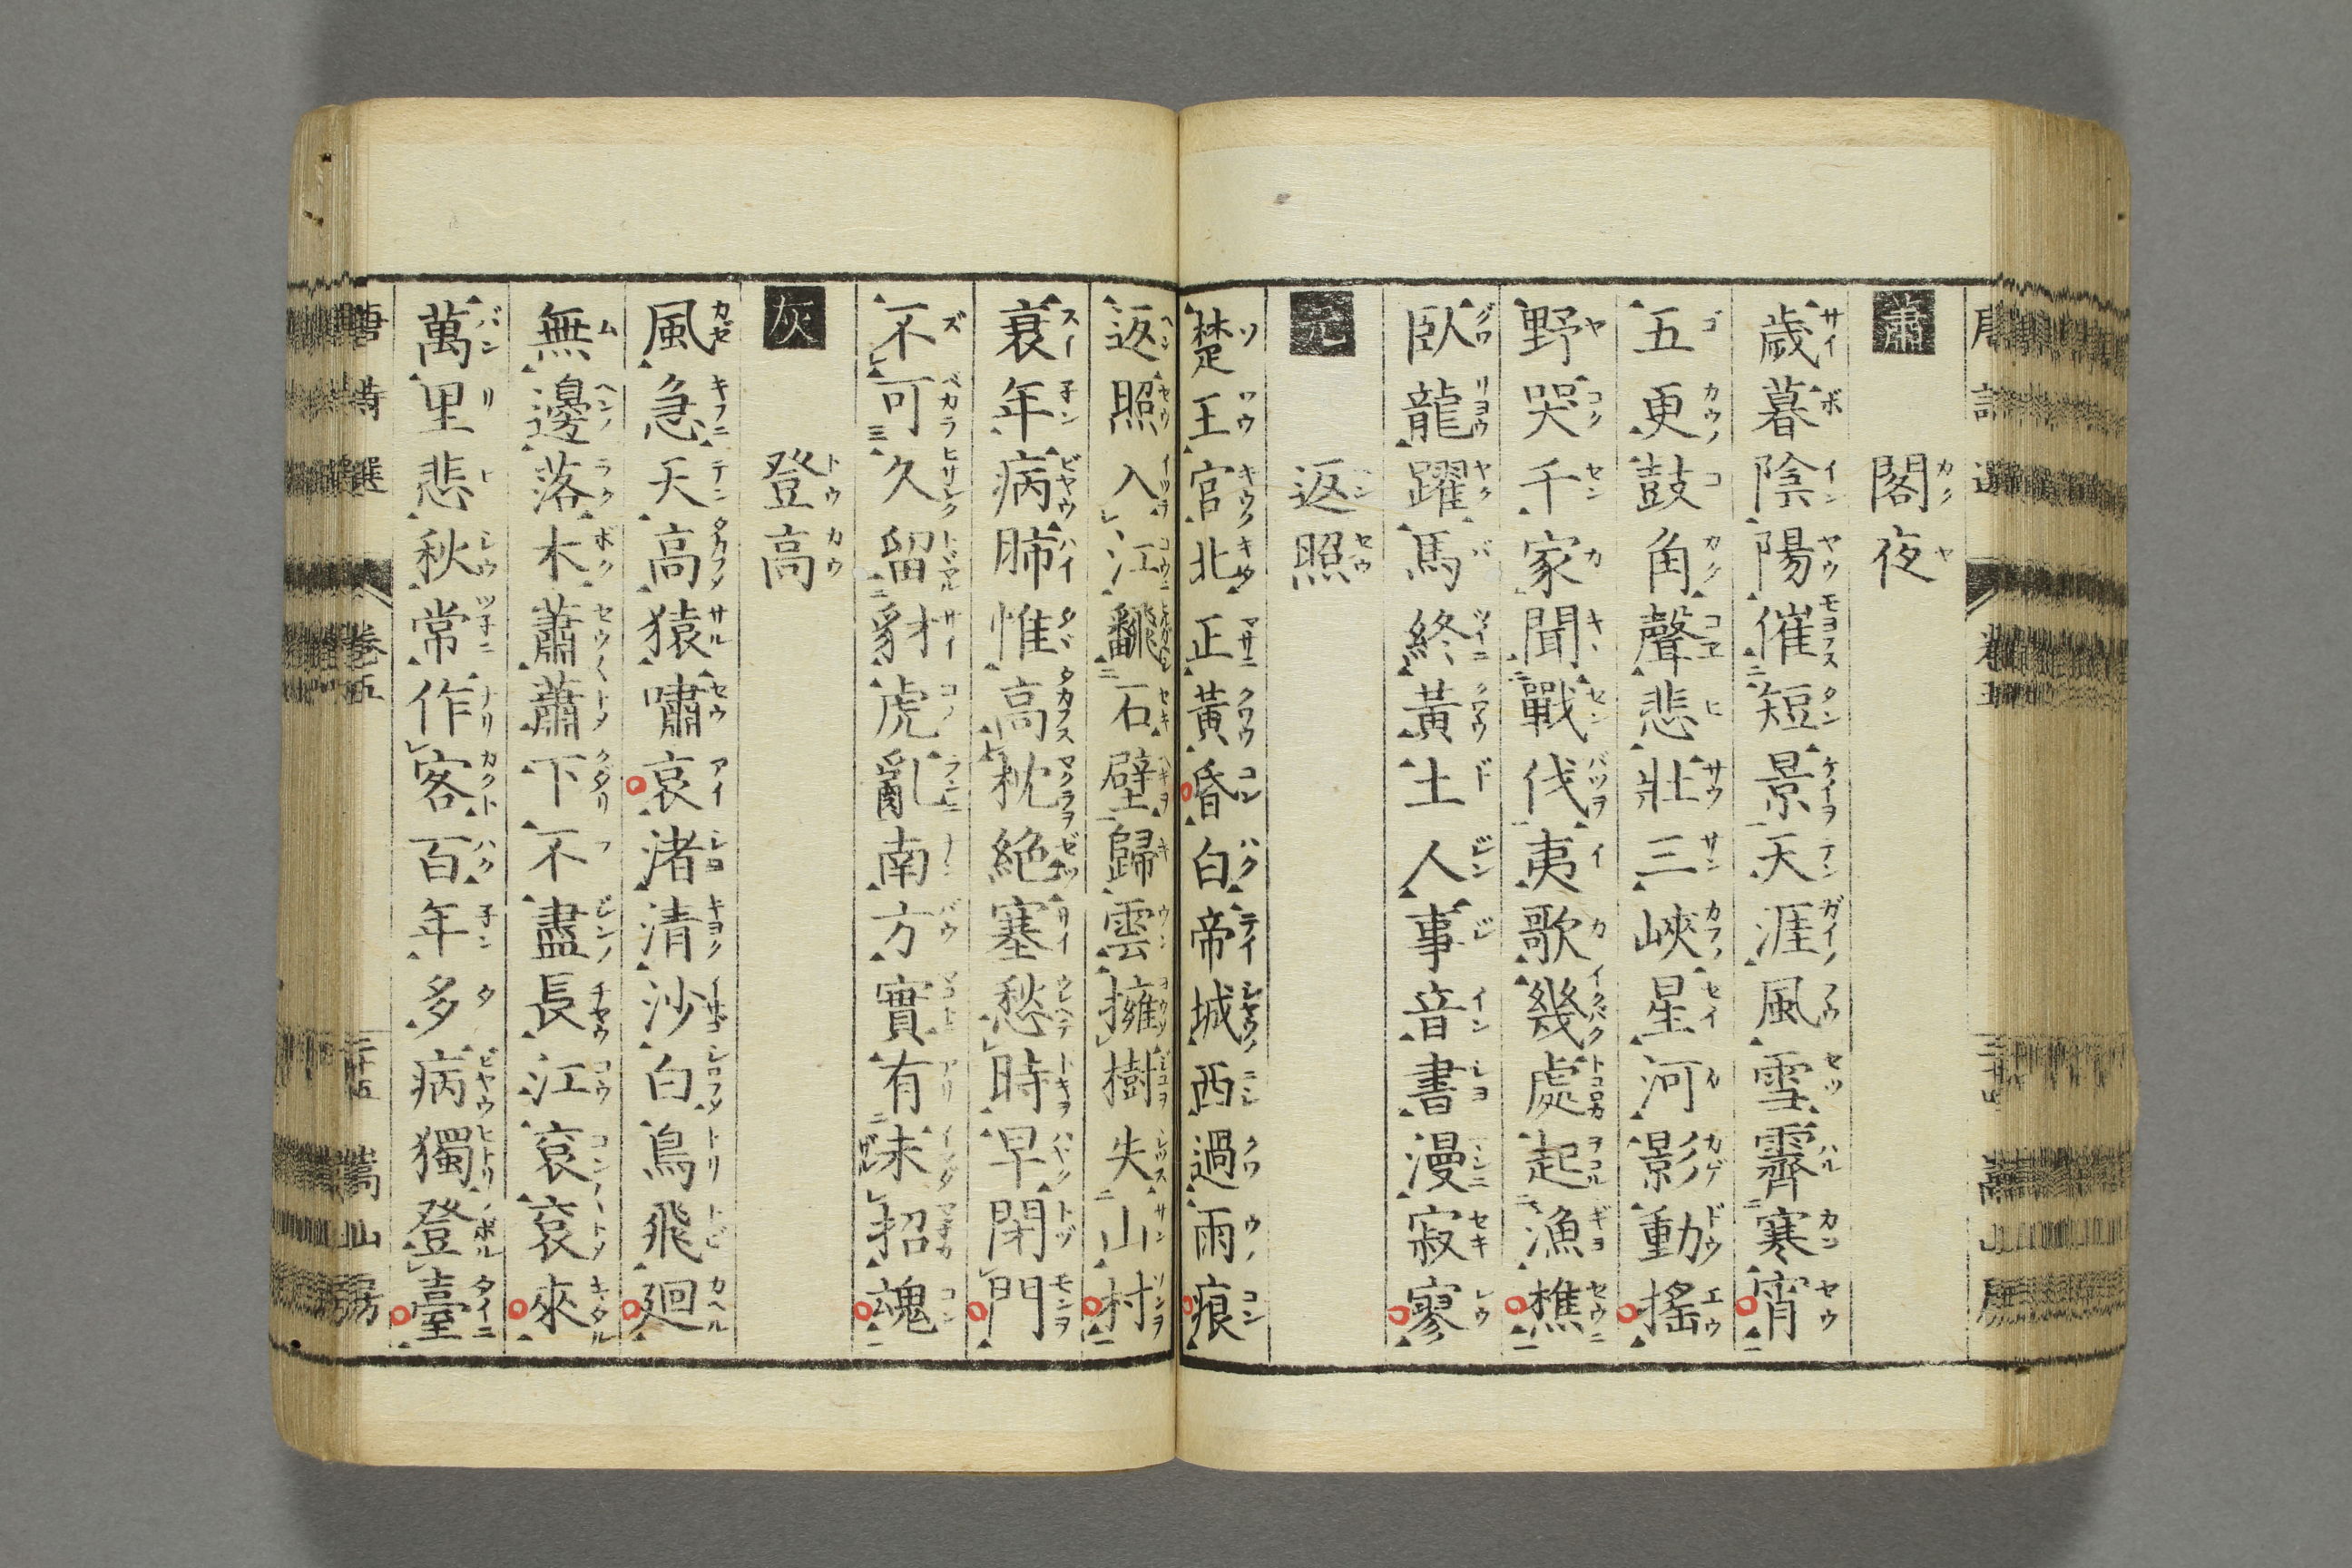 蕭
閣夜
歳暮陰陽催短景天涯風雪霽寒宵
五更鼓角聲悲壯三峽星河影動搖
野哭千家聞戰伐夷歌幾處起漁樵
臥龍躍馬終黃土人事音書漫寂寥
元
返照
楚王宮北正黃昏白帝城西過雨痕
返照入江翻石壁歸雲擁樹失山村
衰年病肺惟高枕絶塞愁時早閉門
不可久留豺虎亂南方實有未招魂
灰
登高
風急天高猿嘯哀渚清沙白鳥飛廻
無邊落木蕭蕭下不盡長江袞袞來
萬里悲秋常作客百年多病獨登臺
唐詩選 卷五 三十五 嵩山房